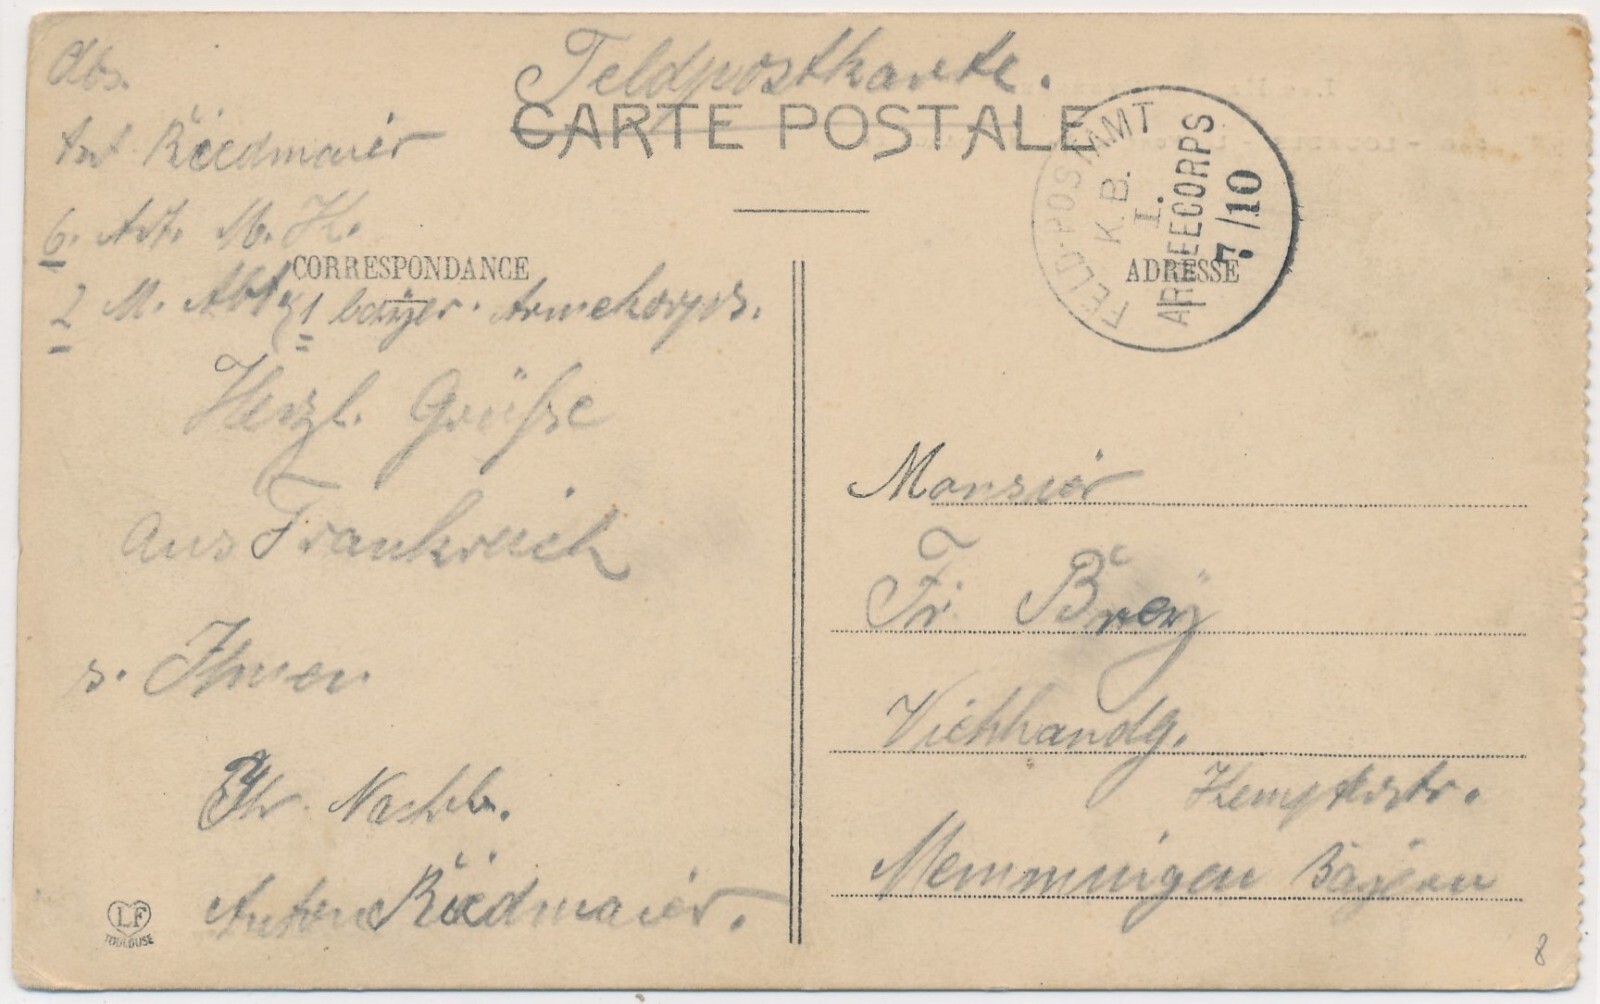 Feldpostkarte.
CARTE POSTALE
Abs.
Ant Riedmaier
6. Art. M. K.
2 M. Abt. 1 bayer. Armekorps.
CORRESPONDANCE
Herzl. Grüße
aus Frankreich
s. Ihnen
Ihr Nachb.
Anton Riedmaier.
LF
TOULOUSE
FELD-POSTAMT
K.B.
I.
ARMEECORPS
7/10
ADRESSE
Monsiör
Fr. Brey
Viehhandg.
Kemptrstr.
Memmingen Bayern
8